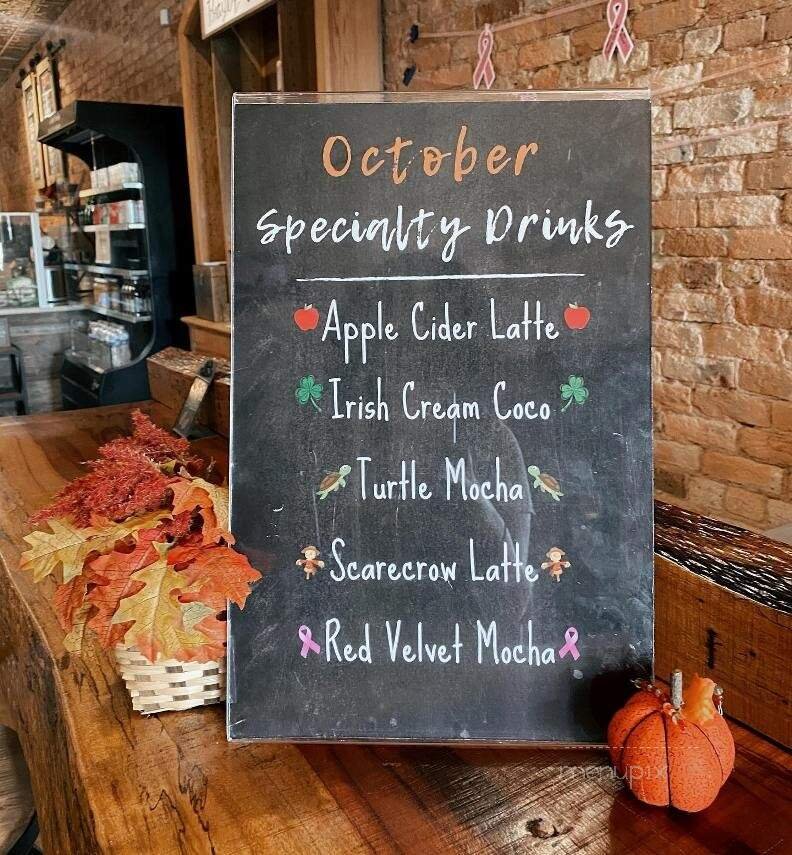 October
Specialty Drinks
Apple Cider Latte
Irish Cream Coco
Turtle Mocha
Scarecrow Latte
Red Velvet Mocha
menupix